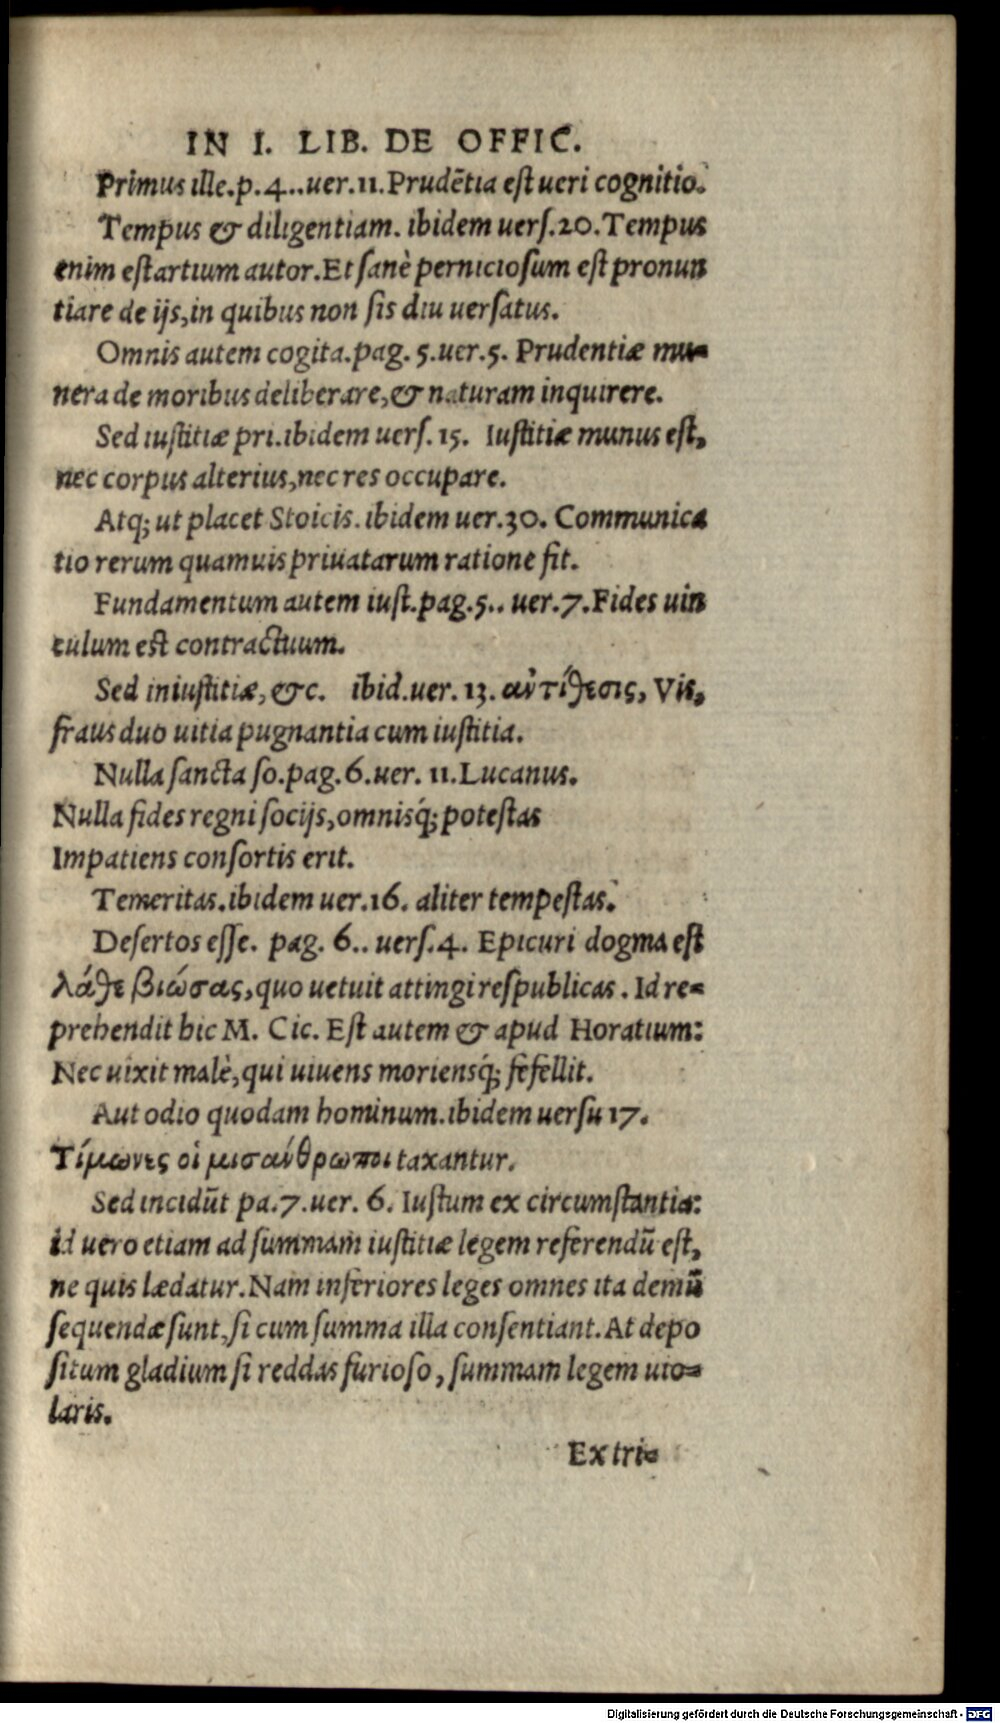 IN I. LIB. DE OFFIC.
Primus ille.p.4..uer.11.Prudẽtia est ueri cognitio.
Tempus & diligentiam. ibidem uers.20.Tempus
enim est artium autor.Et sanè perniciosum est pronun
tiare de ijs,in quibus non sis diu uersatus.
Omnis autem cogita.pag. 5.uer.5. Prudentiæ mu-
nera de moribus deliberare,& naturam inquirere.
Sed iustitiæ pri.ibidem uers. 15. Iustitiæ munus est,
nec corpus alterius,nec res occupare.
Atq; ut placet Stoicis. ibidem uer.30. Communica
tio rerum quamuis priuatarum ratione fit.
Fundamentum autem iust.pag.5.. uer.7.Fides uin
culum est contractuum.
Sed iniustitiæ, &c. ibid.uer. 13. αὐτίθεσις, Vis,
fraus duo uitia pugnantia cum iustitia.
Nulla sancta so.pag.6.uer. 11.Lucanus.
Nulla fides regni socijs,omnisq́; potestas
Impatiens consortis erit.
Temeritas.ibidem uer.16. aliter tempestas.
Desertos esse. pag. 6.. uers.4. Epicuri dogma est
λάθε βιώσας,quo uetuit attingi respublicas. Id re-
prehendit hic M. Cic. Est autem & apud Horatium:
Nec uixit malè,qui uiuens moriensq́; fefellit.
Aut odio quodam hominum.ibidem uersu 17.
Τίμωνες οἱ μισάνθρωποι taxantur.
Sed incidũt pa.7.uer. 6. Iustum ex circumstantia:
id uero etiam ad summam iustitiæ legem referendũ est,
ne quis lædatur.Nam inferiores leges omnes ita demũ
sequendæ sunt,si cum summa illa consentiant.At depo
situm gladium si reddas furioso, summam legem uio-
laris.
Extri-
Digitalisierung gefördert durch die Deutsche Forschungsgemeinschaft - DFG